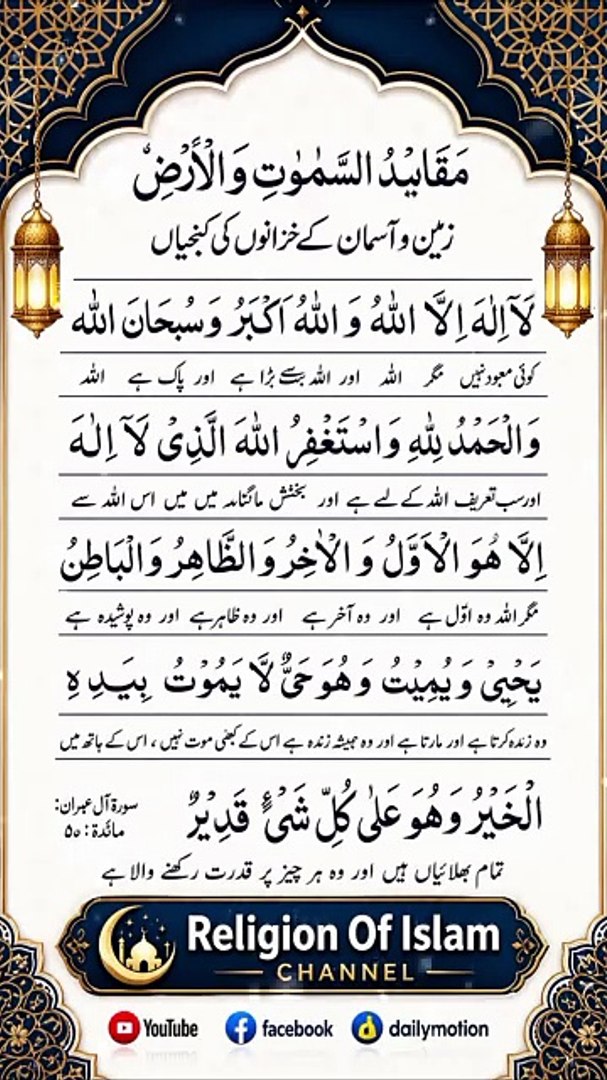 مَقَالِيْدُ السَّمٰوٰتِ وَالْاَرْضِ
زمین و آسمان کے خزانوں کی کنجیاں
لَآ اِلٰهَ اِلَّا اللهُ وَ اللهُ اَكْبَرُ وَسُبحَانَ الله
کوئی معبود نہیں مگر اللہ اور اللہ سب سے بڑا ہے اور پاک ہے اللہ
وَالْحَمْدُ لِلّٰهِ وَاسْتَغْفِرُ اللهَ الَّذِىْ لَآ اِلٰهَ
اور سب تعریف اللہ کے لیے ہے اور بخشش میں میں اس اللہ سے
اِلَّا هُوَ الْاَوَّلُ وَ الْاٰخِرُ وَالظَّاهِرُ وَالْبَاطِنُ
مگر اللہ وہ اوّل ہے اور وہ آخر ہے اور وہ ظاہر ہے اور وہ پوشیدہ ہے
يَحْيِىْ وَيُمِيْتُ وَهُوَ حَىٌّ لَّا يَمُوْتُ بِيَدِهِ
وہ زندہ کرتا ہے اور مارتا ہے اور وہ ہمیشہ زندہ ہے اس کے کبھی موت نہیں ، اس کے ہاتھ میں
الْخَيْرُ وَهُوَ عَلٰى كُلِّ شَىْءٍ قَدِيْرٌ
سورة آل عمران:
مائدة: ٥٥
تمام بھلائیاں ہیں اور وہ ہر چیز پر قدرت رکھنے والا ہے
Religion Of Islam
CHANNEL
YouTube facebook dailymotion